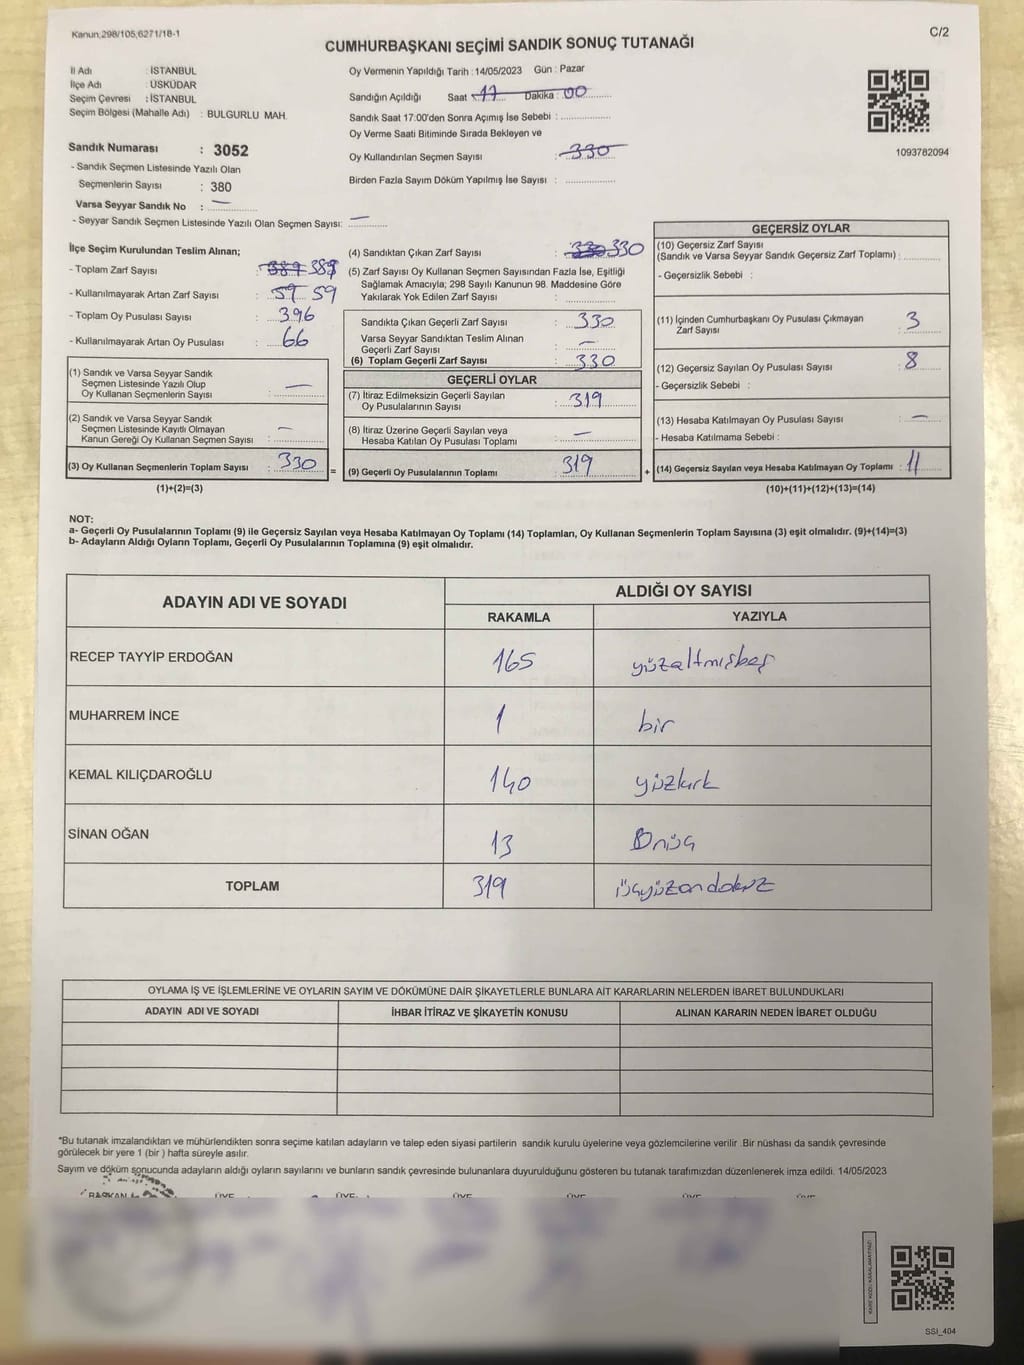 Kanun;298/105;6271/18-1
C/2
CUMHURBAŞKANI SEÇİMİ SANDIK SONUÇ TUTANAĞI
İl Adı : İSTANBUL
İlçe Adı : ÜSKÜDAR
Seçim Çevresi : İSTANBUL
Seçim Bölgesi (Mahalle Adı) : BULGURLU MAH.
Sandık Numarası : 3052
- Sandık Seçmen Listesinde Yazılı Olan
Seçmenlerin Sayısı : 380
Varsa Seyyar Sandık No : —
- Seyyar Sandık Seçmen Listesinde Yazılı Olan Seçmen Sayısı: —
Oy Vermenin Yapıldığı Tarih : 14/05/2023 Gün : Pazar
Sandığın Açıldığı Saat : 17 Dakika : 00
Sandık Saat 17:00'den Sonra Açımış İse Sebebi :
Oy Verme Saati Bitiminde Sırada Bekleyen ve
Oy Kullandırılan Seçmen Sayısı : 330
Birden Fazla Sayım Döküm Yapılmış İse Sayısı :
1093782094
İlçe Seçim Kurulundan Teslim Alınan;
- Toplam Zarf Sayısı : 389 389
- Kullanılmayarak Artan Zarf Sayısı : 59 59
- Toplam Oy Pusulası Sayısı : 396
- Kullanılmayarak Artan Oy Pusulası : 66
(1) Sandık ve Varsa Seyyar Sandık
Seçmen Listesinde Yazılı Olup
Oy Kullanan Seçmenlerin Sayısı : —
(2) Sandık ve Varsa Seyyar Sandık
Seçmen Listesinde Kayıtlı Olmayan
Kanun Gereği Oy Kullanan Seçmen Sayısı : —
(3) Oy Kullanan Seçmenlerin Toplam Sayısı : 330
(1)+(2)=(3)
(4) Sandıktan Çıkan Zarf Sayısı : 330 330
(5) Zarf Sayısı Oy Kullanan Seçmen Sayısından Fazla İse, Eşitliği
Sağlamak Amacıyla; 298 Sayılı Kanunun 98. Maddesine Göre
Yakılarak Yok Edilen Zarf Sayısı :
Sandıkta Çıkan Geçerli Zarf Sayısı : 330
Varsa Seyyar Sandıktan Teslim Alınan
Geçerli Zarf Sayısı : —
(6) Toplam Geçerli Zarf Sayısı : 330
GEÇERLİ OYLAR
(7) İtiraz Edilmeksizin Geçerli Sayılan
Oy Pusulalarının Sayısı : 319
(8) İtiraz Üzerine Geçerli Sayılan veya
Hesaba Katılan Oy Pusulası Toplamı : —
= (9) Geçerli Oy Pusulalarının Toplamı : 319
GEÇERSİZ OYLAR
(10) Geçersiz Zarf Sayısı
(Sandık ve Varsa Seyyar Sandık Geçersiz Zarf Toplamı) :
- Geçersizlik Sebebi :
(11) İçinden Cumhurbaşkanı Oy Pusulası Çıkmayan
Zarf Sayısı : 3
(12) Geçersiz Sayılan Oy Pusulası Sayısı : 8
- Geçersizlik Sebebi :
(13) Hesaba Katılmayan Oy Pusulası Sayısı : —
- Hesaba Katılmama Sebebi :
+ (14) Geçersiz Sayılan veya Hesaba Katılmayan Oy Toplamı : 11
(10)+(11)+(12)+(13)=(14)
NOT:
a- Geçerli Oy Pusulalarının Toplamı (9) ile Geçersiz Sayılan veya Hesaba Katılmayan Oy Toplamı (14) Toplamları, Oy Kullanan Seçmenlerin Toplam Sayısına (3) eşit olmalıdır. (9)+(14)=(3)
b- Adayların Aldığı Oyların Toplamı, Geçerli Oy Pusulalarının Toplamına (9) eşit olmalıdır.
ADAYIN ADI VE SOYADI
ALDIĞI OY SAYISI
RAKAMLA YAZIYLA
RECEP TAYYİP ERDOĞAN 165 yüzaltmışbeş
MUHARREM İNCE 1 bir
KEMAL KILIÇDAROĞLU 140 yüzkırk
SİNAN OĞAN 13 Onüç
TOPLAM 319 üçyüzondokuz
OYLAMA İŞ VE İŞLEMLERİNE VE OYLARIN SAYIM VE DÖKÜMÜNE DAİR ŞİKAYETLERLE BUNLARA AİT KARARLARIN NELERDEN İBARET BULUNDUKLARI
ADAYIN ADI VE SOYADI İHBAR İTİRAZ VE ŞİKAYETİN KONUSU ALINAN KARARIN NEDEN İBARET OLDUĞU
*Bu tutanak imzalandıktan ve mühürlendikten sonra seçime katılan adayların ve talep eden siyasi partilerin sandık kurulu üyelerine veya gözlemcilerine verilir .Bir nüshası da sandık çevresinde
görülecek bir yere 1 (bir ) hafta süreyle asılır.
Sayım ve döküm sonucunda adayların aldığı oyların sayılarını ve bunların sandık çevresinde bulunanlara duyurulduğunu gösteren bu tutanak tarafımızdan düzenlenerek imza edildi. 14/05/2023
BAŞKAN ÜYE ÜYE ÜYE ÜYE ÜYE ÜYE
SSI_404